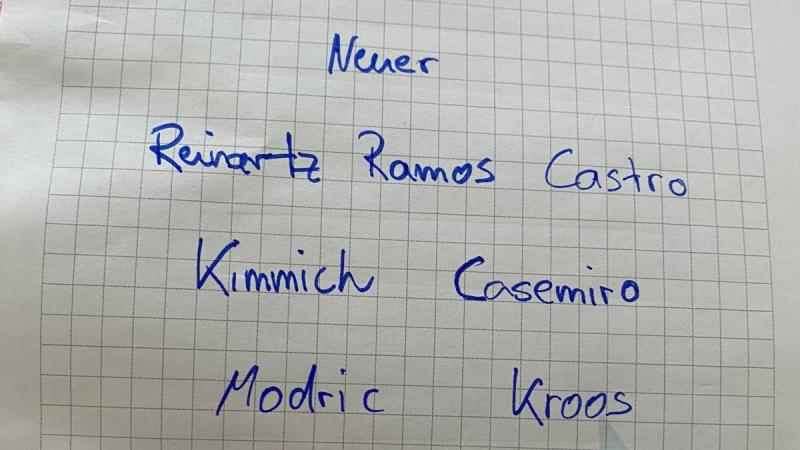 Neuer
Reinartz Ramos Castro
Kimmich Casemiro
Modric Kroos